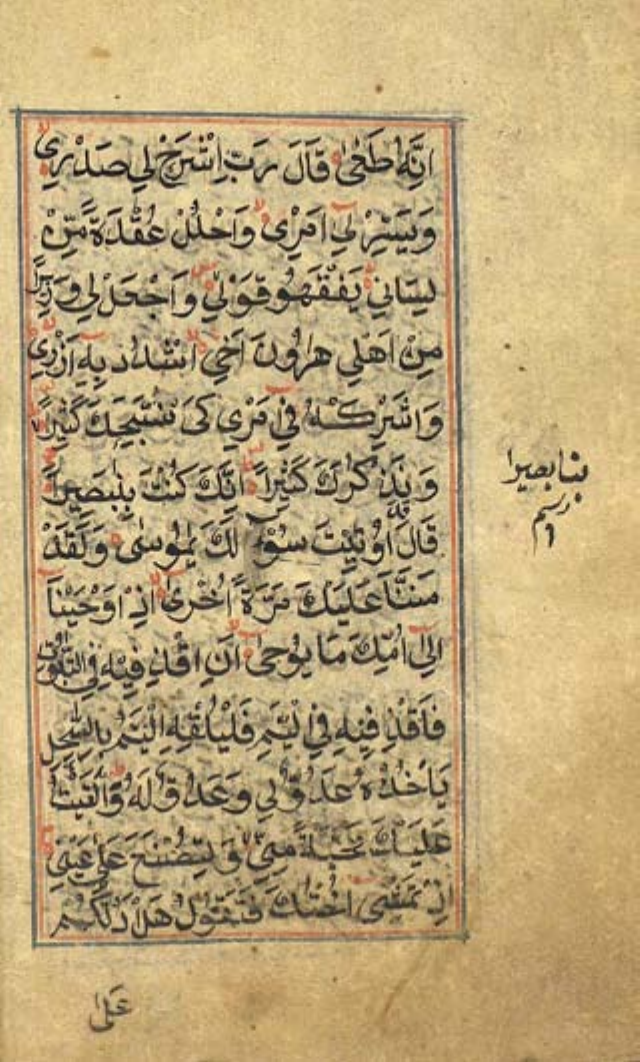 اِنَّهُ طَغٰى قَالَ رَبِّ اشْرَحْ لِي صَدْرِي
وَيَسِّرْ لِي اَمْرِي وَاحْلُلْ عُقْدَةً مِّنْ
لِسَانِي يَفْقَهُوا قَوْلِي وَاجْعَلْ لِي وَزِيرًا
مِنْ اَهْلِي هٰرُونَ اَخِي اشْدُدْ بِهٖ اَزْرِي
وَاَشْرِكْهُ فِي اَمْرِي كَيْ نُسَبِّحَكَ كَثِيرًا
وَنَذْكُرَكَ كَثِيرًا اِنَّكَ كُنْتَ بِنَا بَصِيرًا
قَالَ قَدْ اُوتِيتَ سُؤْلَكَ يٰمُوسٰى وَلَقَدْ
مَنَنَّا عَلَيْكَ مَرَّةً اُخْرٰى اِذْ اَوْحَيْنَا
اِلٰى اُمِّكَ مَا يُوحٰى اَنِ اقْذِفِيهِ فِي التَّابُوتِ
فَاقْذِفِيهِ فِي الْيَمِّ فَلْيُلْقِهِ الْيَمُّ بِالسَّاحِلِ
يَأْخُذْهُ عَدُوٌّ لِي وَعَدُوٌّ لَهُ وَاَلْقَيْتُ
عَلَيْكَ مَحَبَّةً مِنِّي وَلِتُصْنَعَ عَلٰى عَيْنِي
اِذْ تَمْشِي اُخْتُكَ فَتَقُولُ هَلْ اَدُلُّكُمْ
عَلٰى
بنا بصيرا
رسم